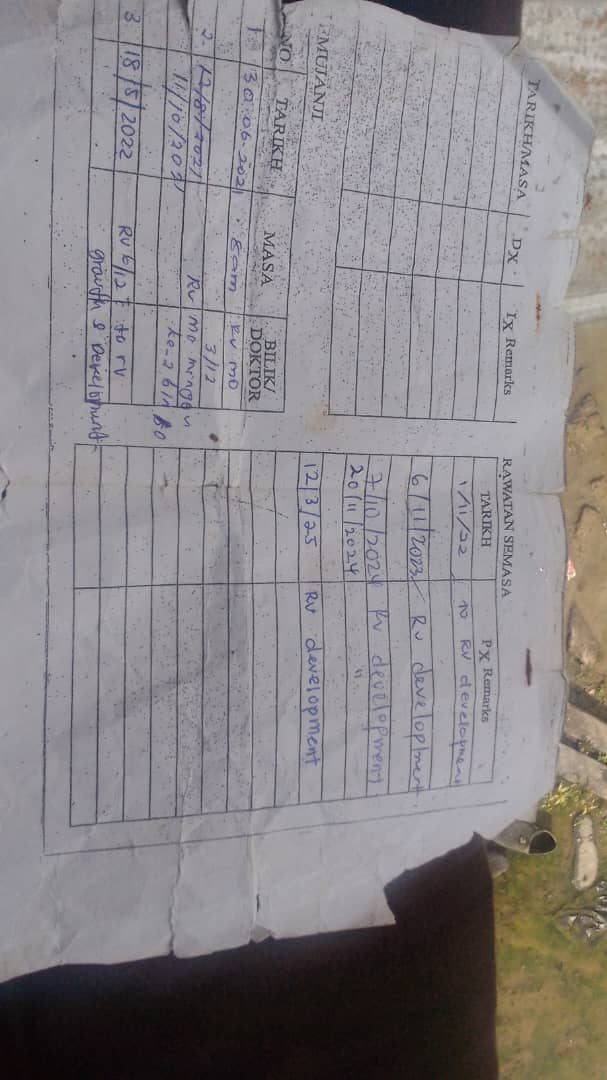 TARIKH/MASA DX Ix Remarks
EMULANJI
NO TARIKH MASA BILIK/DOKTOR
1. 30.06.2021 8am RV MO
2. 3/12
11/10/2021 RV MO
3 18/5/2022 RV 6/12 to rv
growth & Development
RAWATAN SEMASA
TARIKH Px Remarks
1/11/22 to RV development
6/11/2023 RV development
7/10/2024 RV development
20/11/2024
12/3/25 RV development